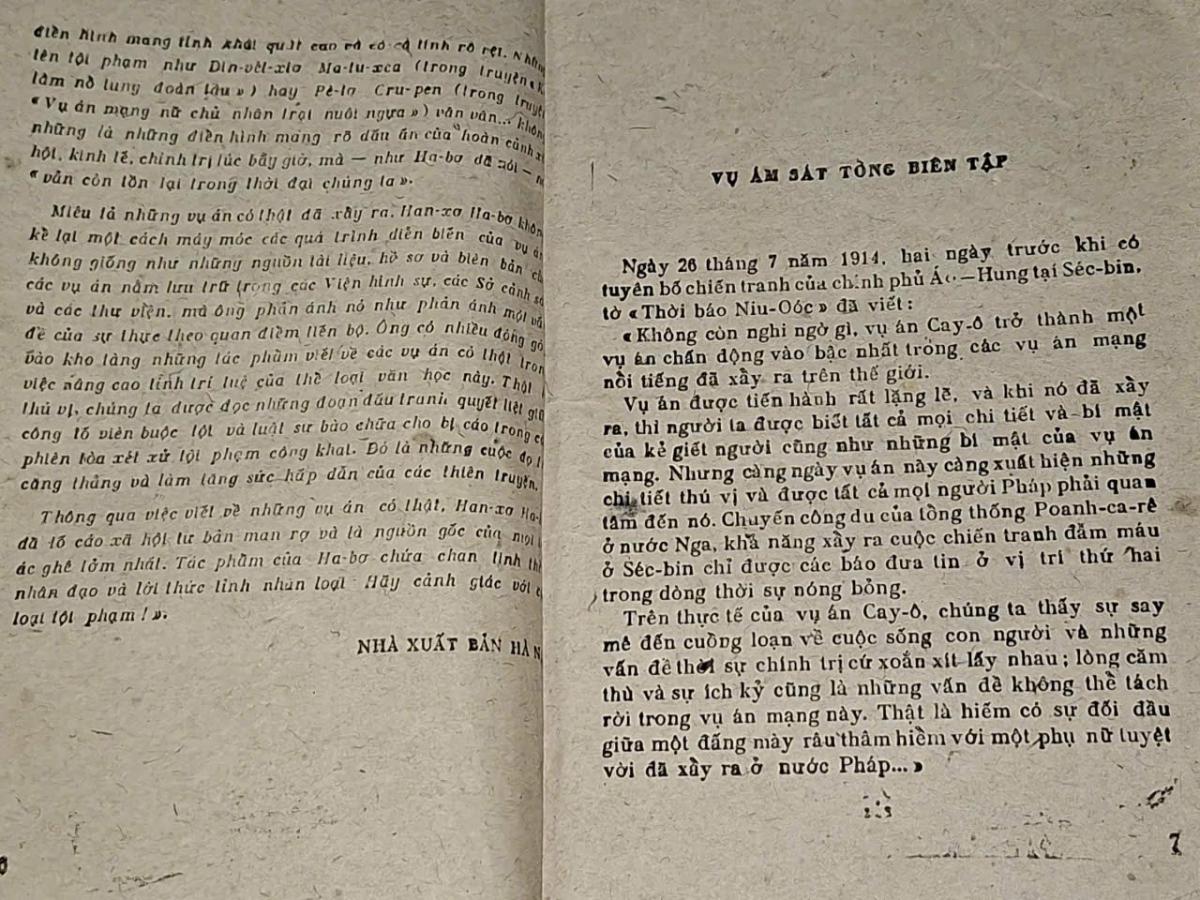 điển hình mang tính khái quát cao và có cá tính rõ rệt. Những
tên tội phạm như Din-vét-xtơ Ma-tu-xca (trong truyện
làm nổ tung đoàn tàu») hay Pê-tơ Cru-pen (trong truyện
«Vụ án mạng nữ chủ nhân trại nuôi ngựa») vân vân... không
những là những điển hình mang rõ dấu ấn của hoàn cảnh xã
hội, kinh tế, chính trị lúc bấy giờ, mà — như Ha-bơ đã nói —
«vẫn còn tồn lại trong thời đại chúng ta».
Miêu tả những vụ án có thật đã xảy ra, Han-xơ Ha-bơ không
kể lại một cách máy móc các quá trình diễn biến của vụ án
không giống như những nguồn tài liệu, hồ sơ và biên bản của
các vụ án nằm lưu trữ trong các Viện hình sự, các Sở cảnh sát
và các thư viện, mà ông phản ánh nó như phản ánh một vấn
đề của sự thực theo quan điểm tiến bộ. Ông có nhiều đóng góp
vào kho tàng những tác phẩm viết về các vụ án có thật trong
việc nâng cao tính trí tuệ của thể loại văn học này. Thật
thú vị, chúng ta được đọc những đoạn đấu tranh quyết liệt giữa
công tố viên buộc tội và luật sư bào chữa cho bị cáo trong các
phiên tòa xét xử tội phạm công khai. Đó là những cuộc đọ
căng thẳng và làm tăng sức hấp dẫn của các thiên truyện.
Thông qua việc viết về những vụ án có thật, Han-xơ Ha-bơ
đã tố cáo xã hội tư bản man rợ và là nguồn gốc của mọi
ác ghê tởm nhất. Tác phẩm của Ha-bơ chứa chan tình
nhân đạo và lời thức tỉnh nhân loại Hãy cảnh giác với
loại tội phạm!».
NHÀ XUẤT BẢN HÀ N
VỤ ÁM SÁT TỔNG BIÊN TẬP
Ngày 26 tháng 7 năm 1914, hai ngày trước khi có
tuyên bố chiến tranh của chính phủ Áo—Hung tại Séc-bin,
tờ «Thời báo Niu-Oóc» đã viết:
«Không còn nghi ngờ gì, vụ án Cay-ô trở thành một
vụ án chấn động vào bậc nhất trong các vụ án mạng
nổi tiếng đã xảy ra trên thế giới.
Vụ án được tiến hành rất lặng lẽ, và khi nó đã xảy
ra, thì người ta được biết tất cả mọi chi tiết và bí mật
của kẻ giết người cũng như những bí mật của vụ án
mạng. Nhưng càng ngày vụ án này càng xuất hiện những
chi tiết thú vị và được tất cả mọi người Pháp phải quan
tâm đến nó. Chuyến công du của tổng thống Poanh-ca-rê
ở nước Nga, khả năng xảy ra cuộc chiến tranh đẫm máu
ở Séc-bin chỉ được các báo đưa tin ở vị trí thứ hai
trong dòng thời sự nóng bỏng.
Trên thực tế của vụ án Cay-ô, chúng ta thấy sự say
mê đến cuồng loạn về cuộc sống con người và những
vấn đề thời sự chính trị cứ xoắn xít lấy nhau; lòng căm
thù và sự ích kỷ cũng là những vấn đề không thể tách
rời trong vụ án mạng này. Thật là hiếm có sự đối đầu
giữa một đấng mày râu thâm hiểm với một phụ nữ tuyệt
vời đã xảy ra ở nước Pháp...»
7